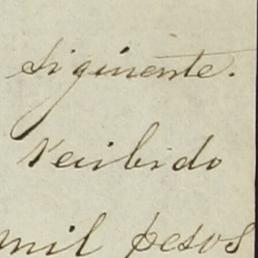 siguiente.
recibido
mil pesos